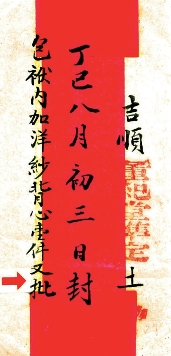 吉順
丁巳八月初三日封
包袱内加洋紗背心壹件又批